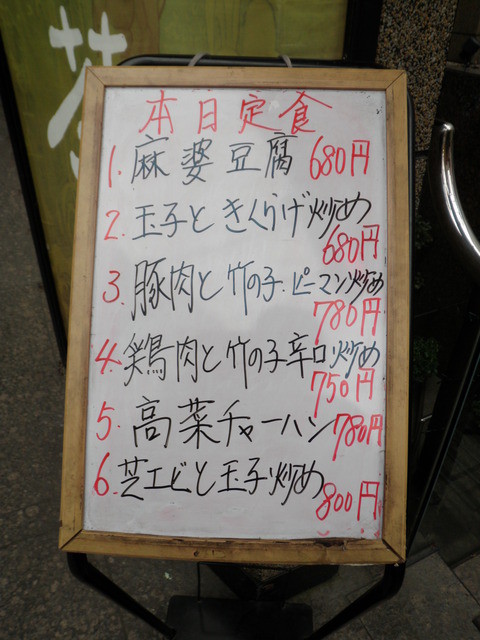 茶
本日定食
1. 麻婆豆腐 680円
2. 玉子ときくらげ炒め
680円
3. 豚肉と竹の子.ピーマン炒め
780円
4. 鶏肉と竹の子辛口炒め
750円
5. 高菜チャーハン 780円
6. 芝エビと玉子炒め
800円